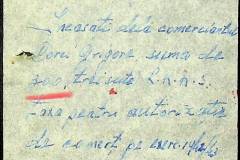 Încasat dela comerciantul
Doru Grigore suma de
300, trei sute R.N.R.S.
Taxa pentru autorizatia
de comert pe